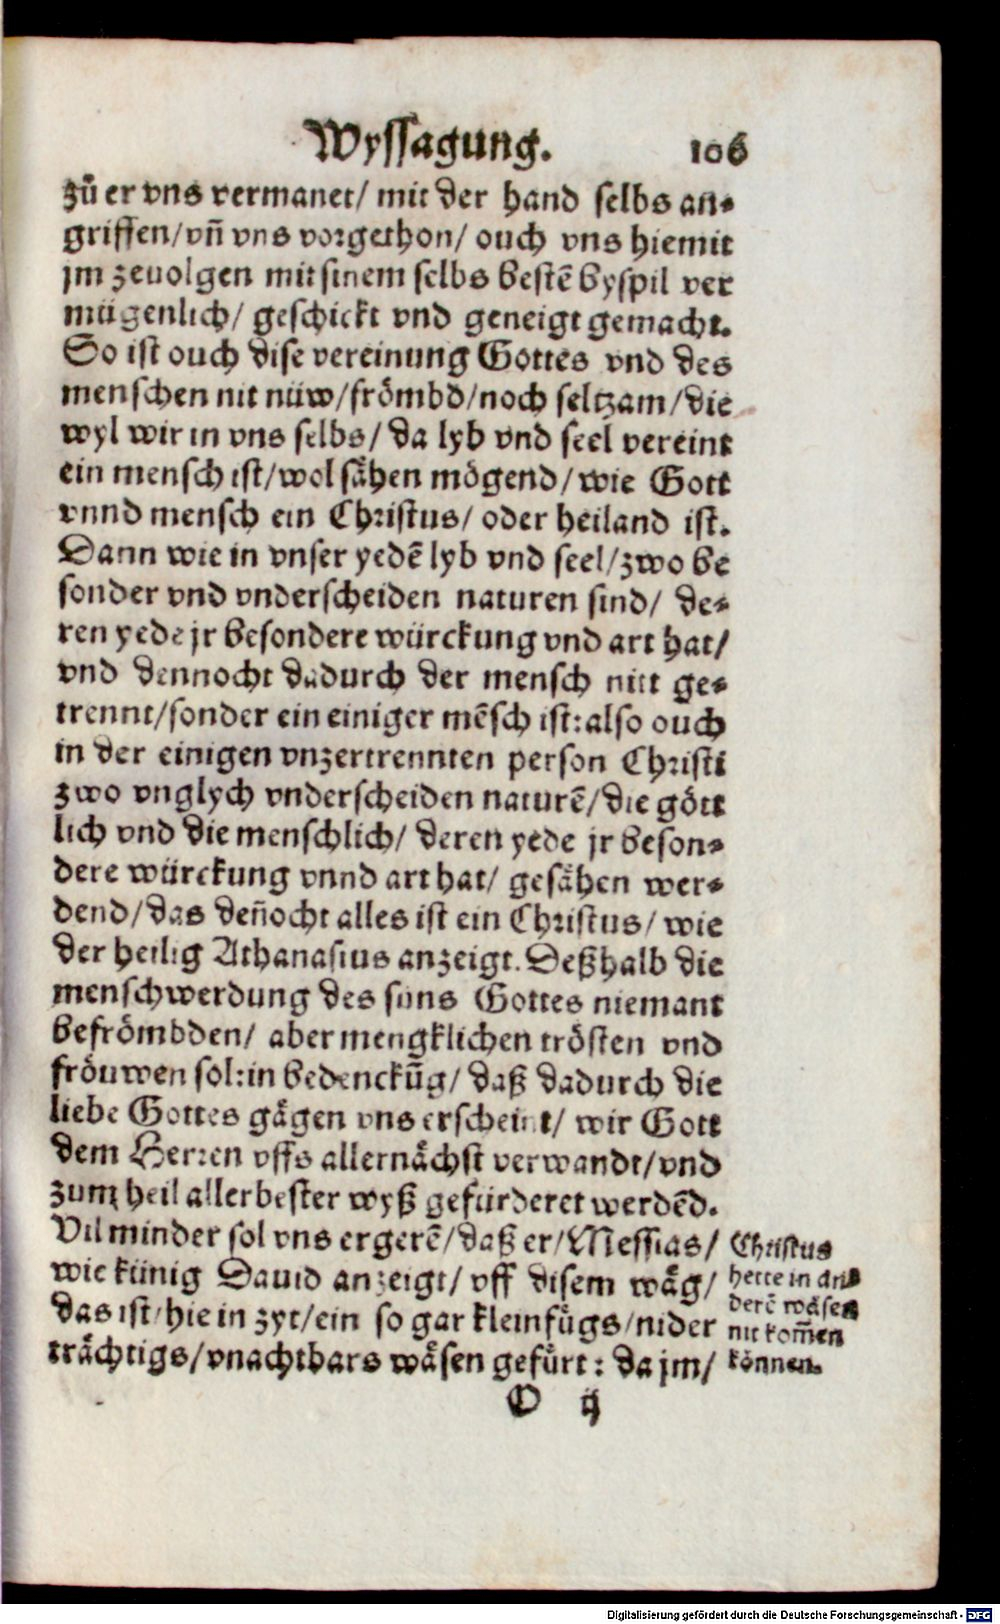 Wyssagung. 106
zuͦ er vns vermanet/ mit der hand selbs an⸗
griffen/vñ vns vorgethon/ ouch vns hiemit
jm zeuolgen mit sinem selbs bestē byspil ver
mügenlich/ geschickt vnd geneigt gemacht.
So ist ouch dise vereinung Gottes vnd des
menschen nit nüw/frömbd/noch seltzam/die
wyl wir in vns selbs/ da lyb vnd seel vereint
ein mensch ist/wol sähen mögend/wie Gott
vnnd mensch ein Christus/ oder heiland ist.
Dann wie in vnser yedē lyb vnd seel/zwo be
sonder vnd vnderscheiden naturen sind/ de⸗
ren yede jr besondere würckung vnd art hat/
vnd dennocht dadurch der mensch nitt ge⸗
trennt/sonder ein einiger mēsch ist: also ouch
in der einigen vnzertrennten person Christi
zwo vnglych vnderscheiden naturē/die gött
lich vnd die menschlich/ deren yede jr beson⸗
dere würckung vnnd art hat/ gesähen wer⸗
dend/das deñocht alles ist ein Christus/ wie
der heilig Athanasius anzeigt. Deßhalb die
menschwerdung des suns Gottes niemant
befrömbden/ aber mengklichen trösten vnd
fröuwen sol: in bedenckūg/ daß dadurch die
liebe Gottes gägen vns erscheint/ wir Gott
dem Herren vffs allernächst verwandt/vnd
zum heil allerbester wyß gefürderet werdēd.
Vil minder sol vns ergerē/daß er/Messias/
wie künig Dauid anzeigt/ vff disem wäg/
das ist/hie in zyt/ein so gar kleinfuͤgs/nider
trächtigs/vnachtbars wäsen gefuͤrt: da jm/
Christus
hette in an⸗
derē wäsen
nit kom̄en
können.
O ij
Digitalisierung gefördert durch die Deutsche Forschungsgemeinschaft - DFG